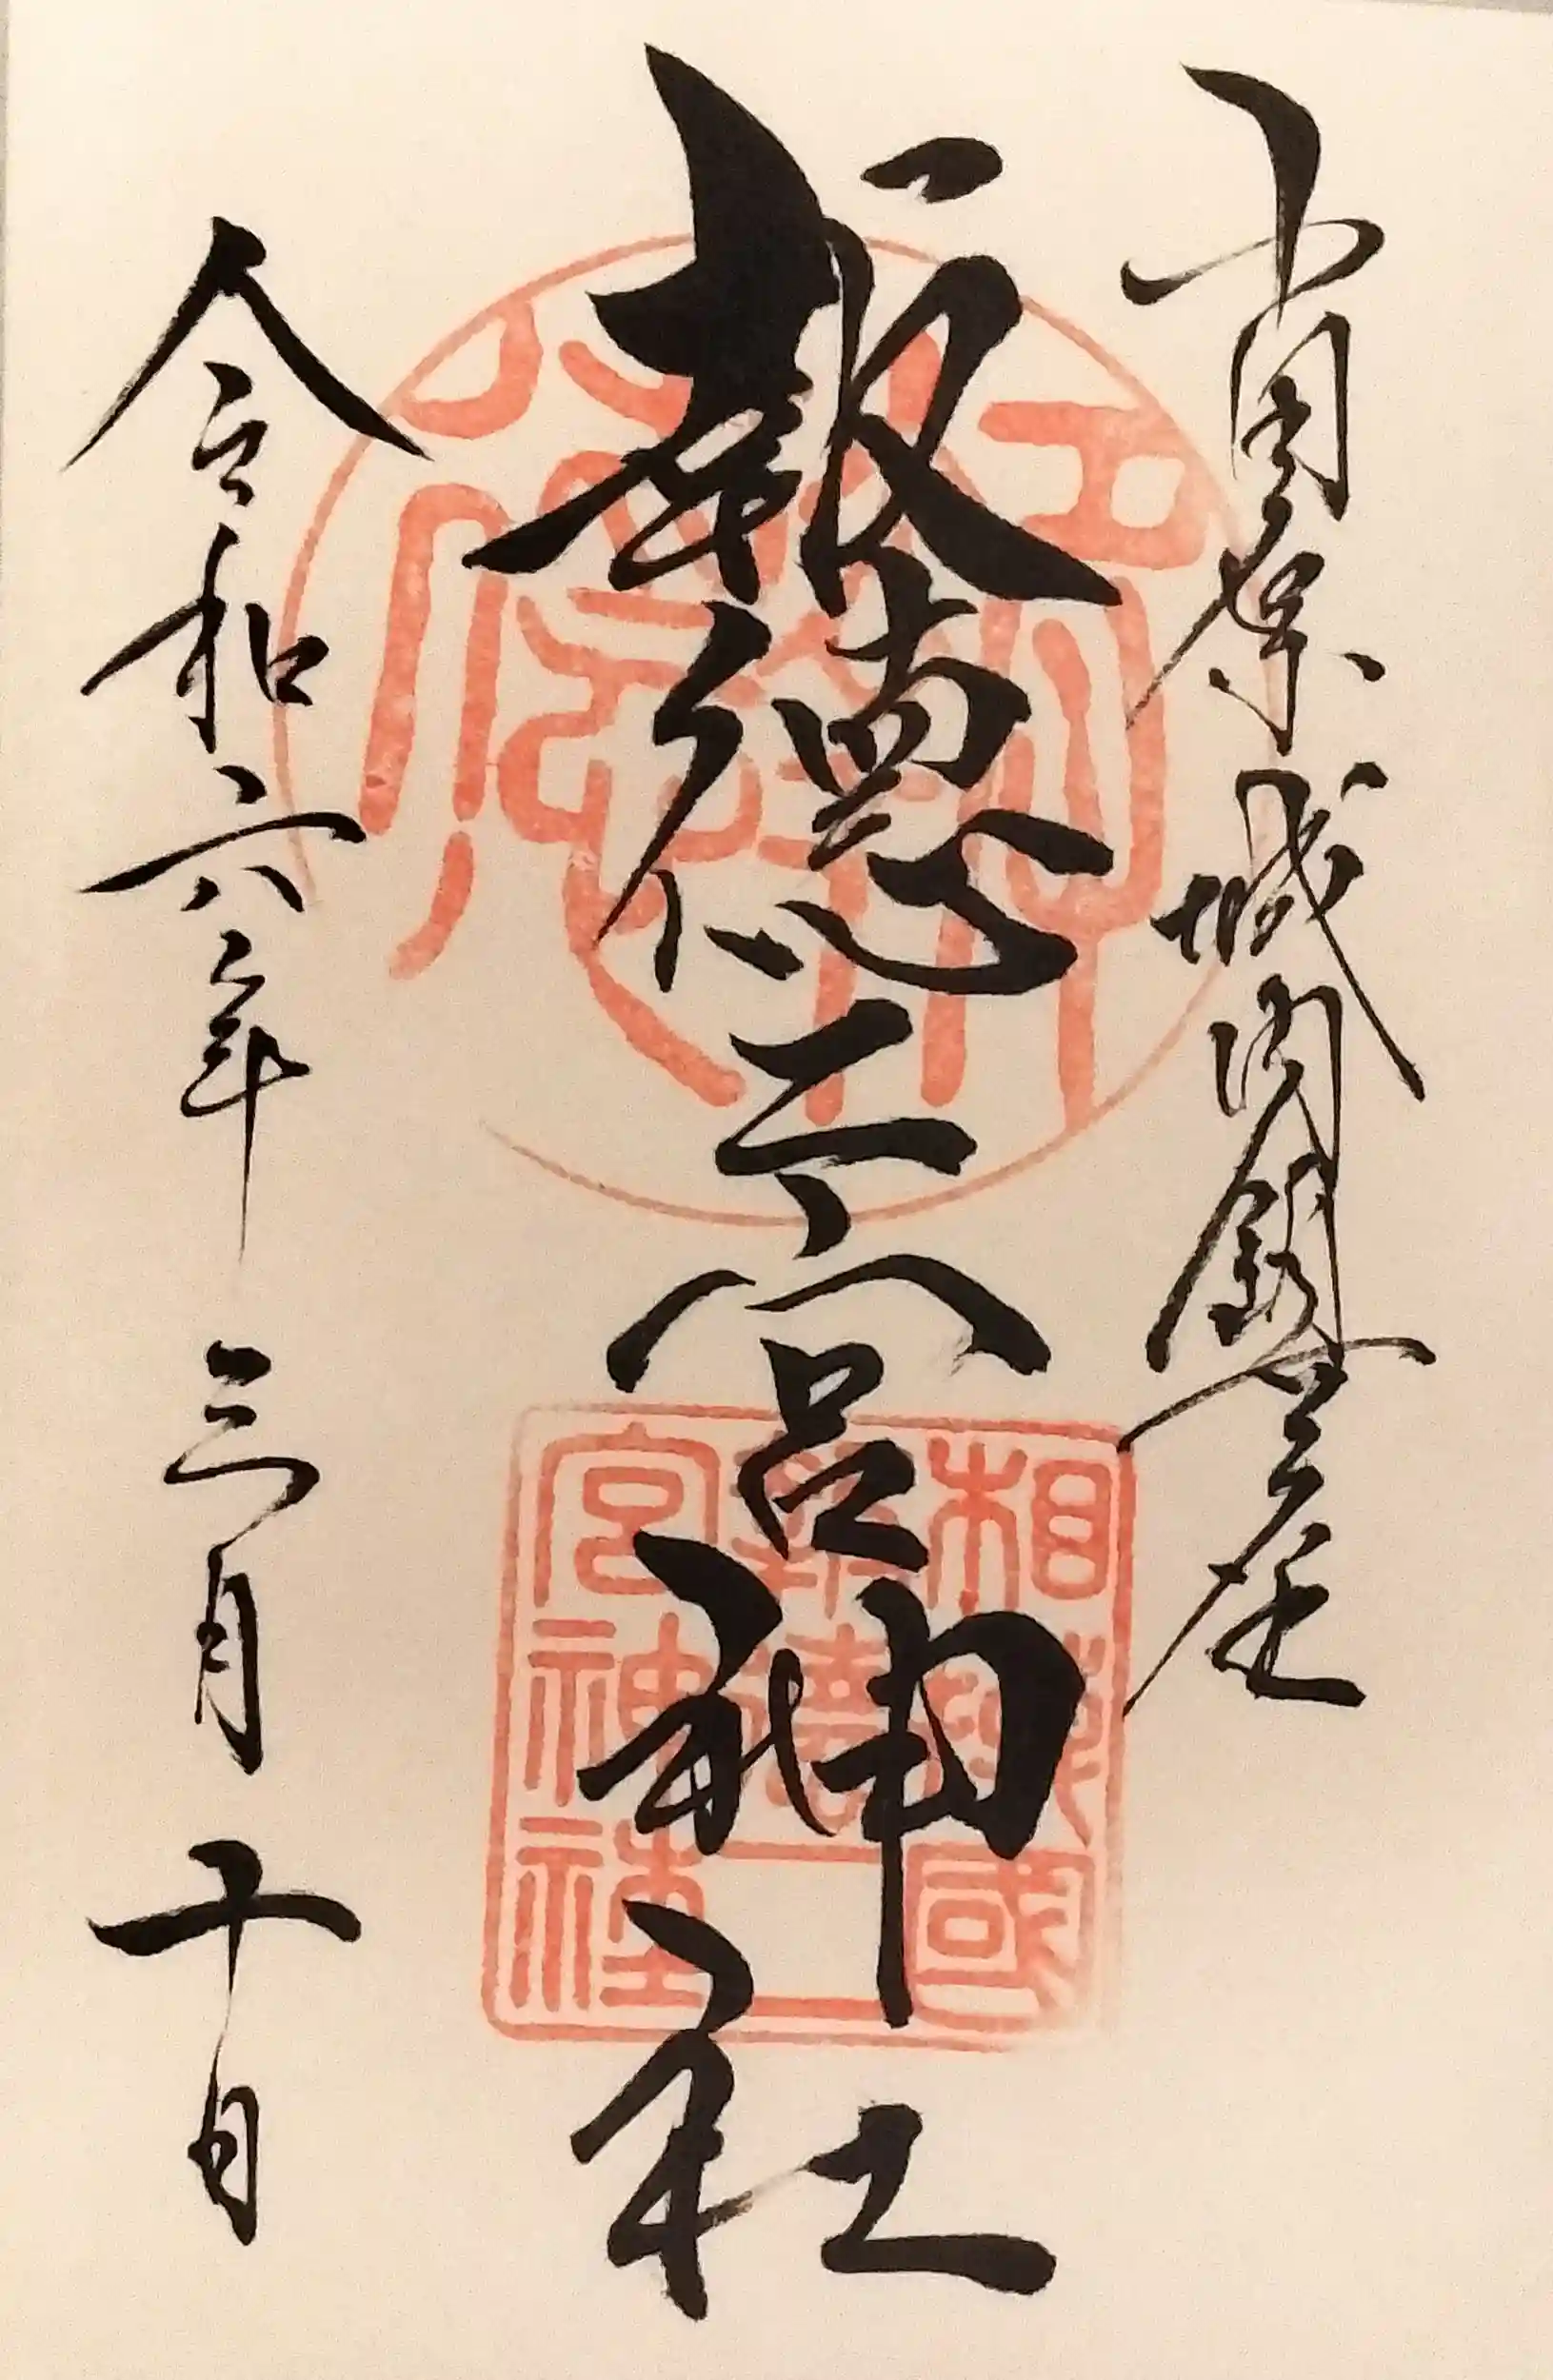 小田原城内鎮座
報徳二宮神社
令和六年三月十日
相模國
報徳二
宮神社